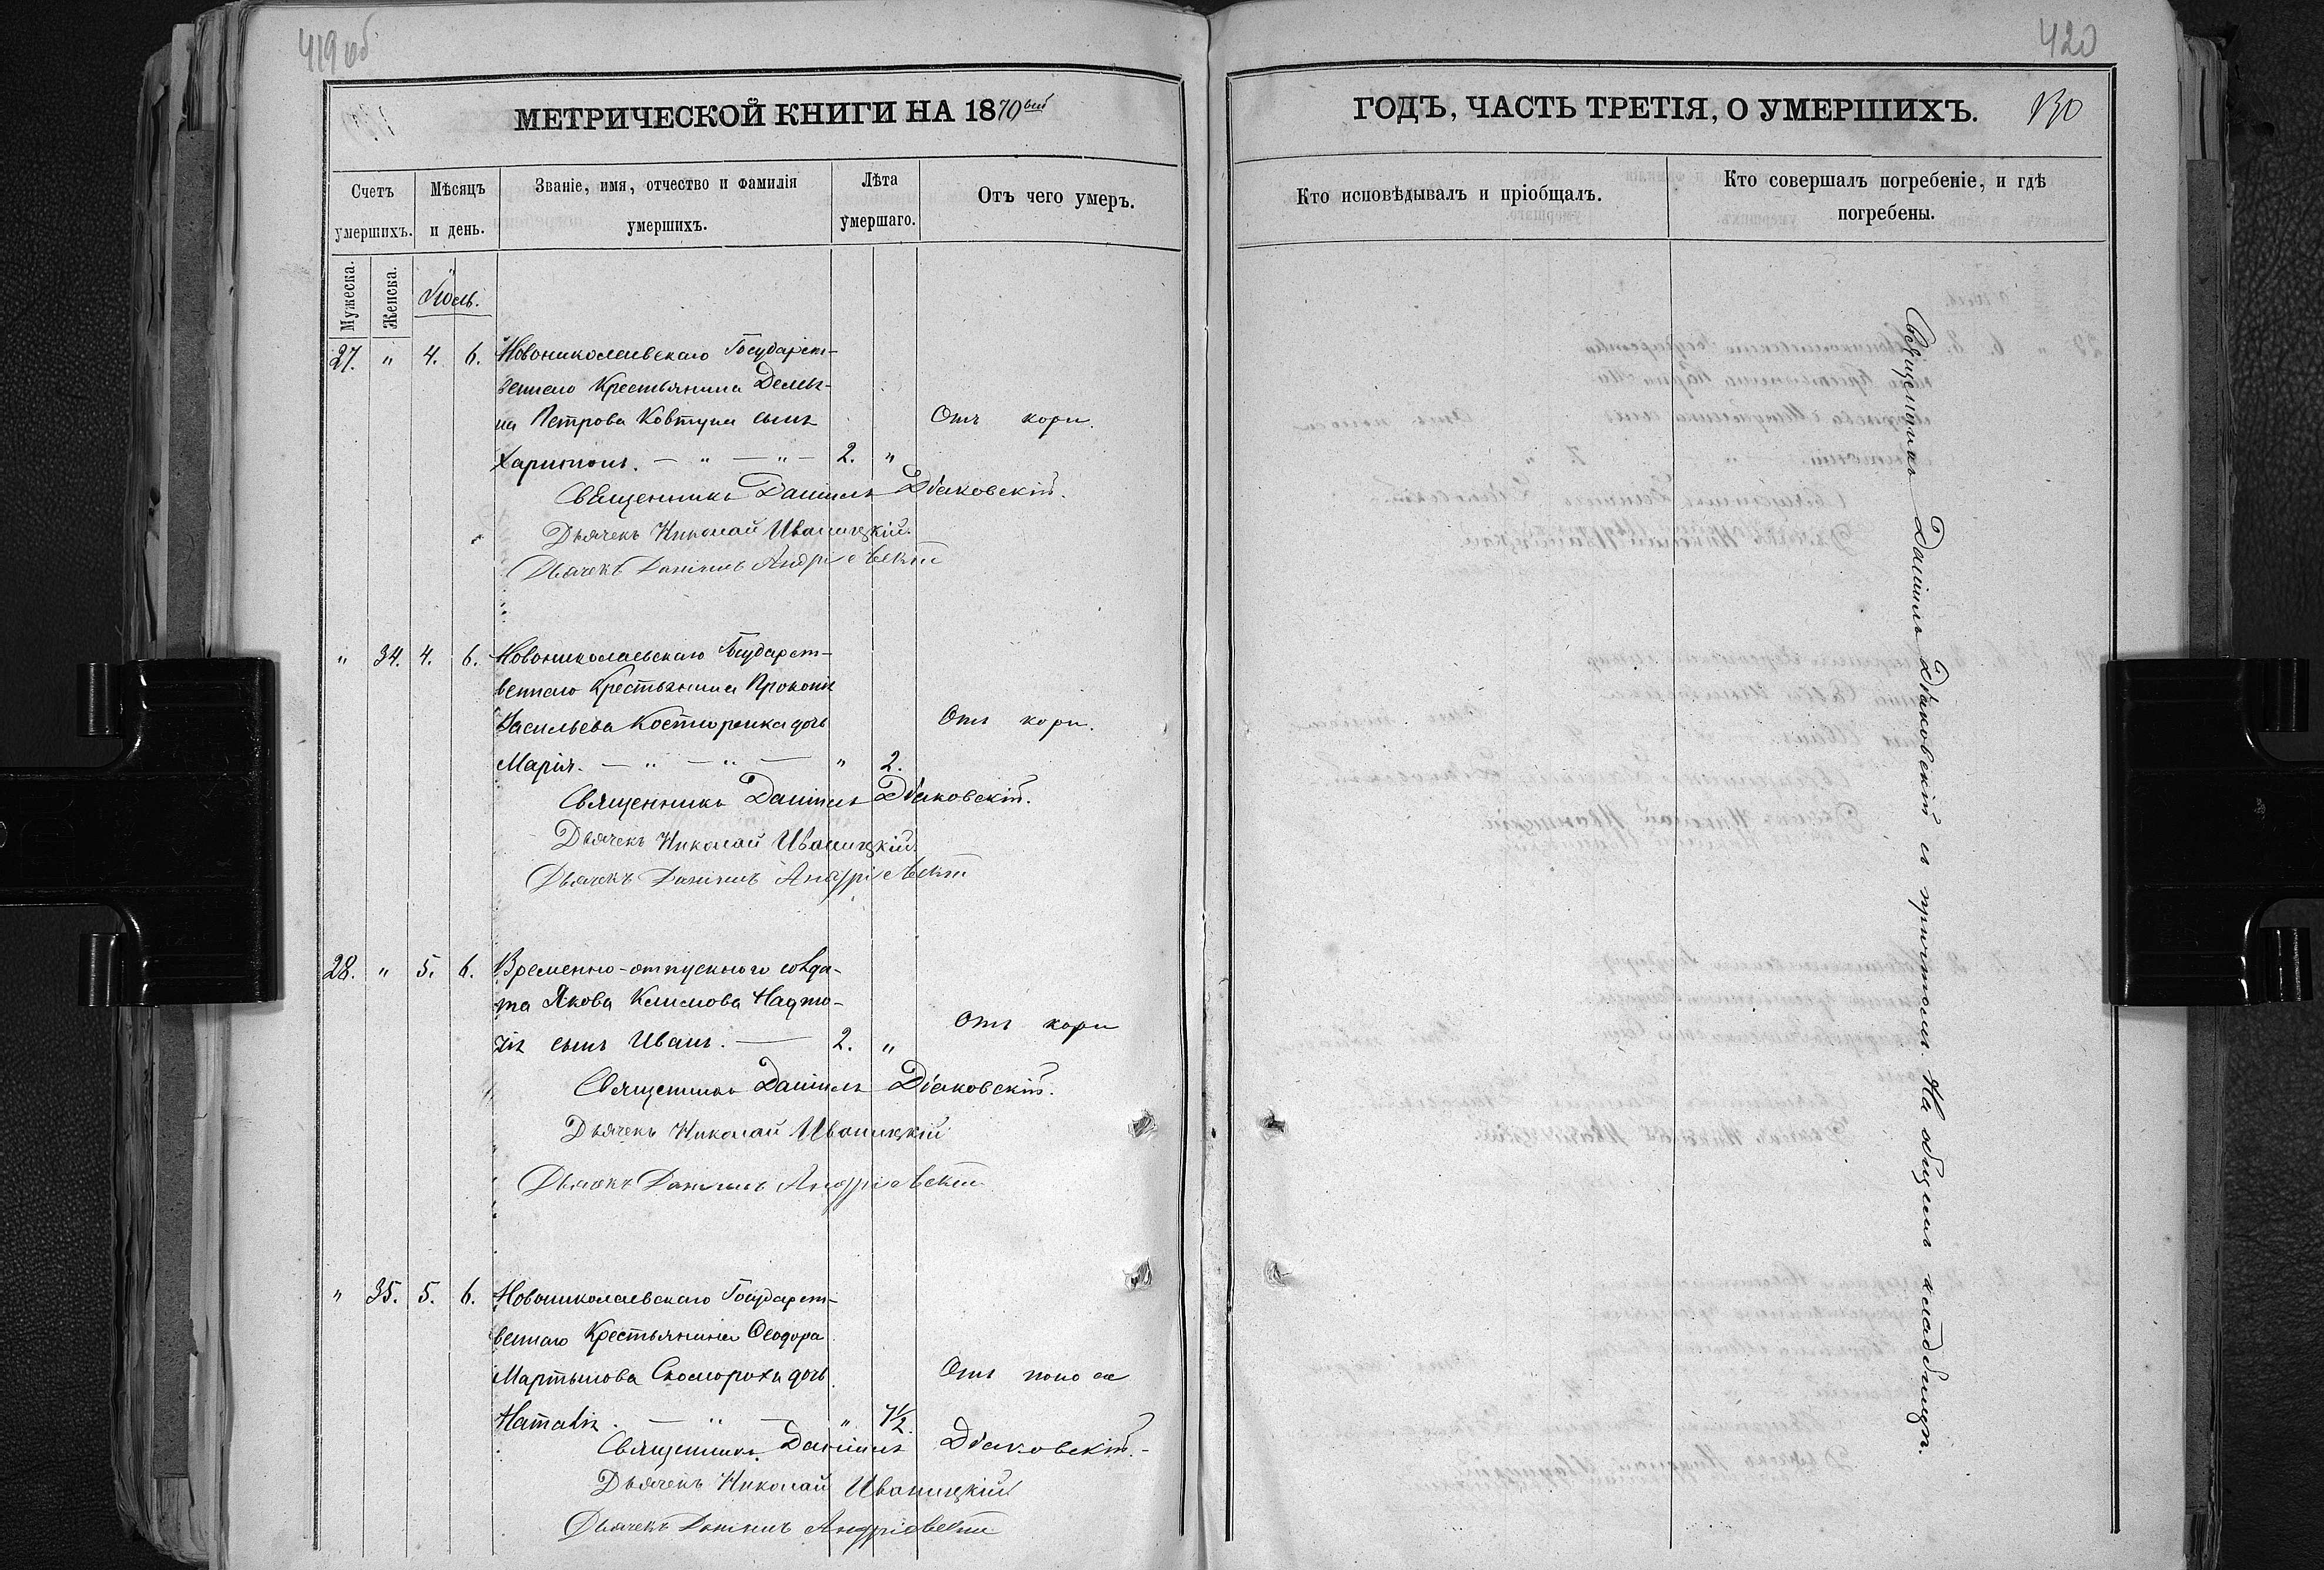 419 об
МЕТРИЧЕСКОЙ КНИГИ НА 1870 вый
Счетъ умершихъ.
Мѣсяцъ и день.
Званіе, имя, отчество и фамилія умершихъ.
Лѣта умершаго.
Отъ чего умеръ.
Мужеска.
Женска.
Іюль.
27. " 4. 6. Новониколаевскаго Государст-
веннаго Крестьянина Демья-
на Петрова Ковтуна сынъ Отъ кори.
Харитонъ. — " — " — 2. "
Священникъ Даніилъ Дьяковскій.
Дьячекъ Николай Иваницкій.
Дьячекъ Даніилъ Андріевскій
" 34. 4. 6. Новониколаевскаго Государст-
веннаго Крестьянина Прокопія
Васильева Костюренка дочь Отъ кори.
Марія. — " — " — " 2.
Священникъ Даніилъ Дьяковскій.
Дьячекъ Николай Иваницкій.
Дьячекъ Даніилъ Андріевскій
28. " 5. 6. Временно-отпускного солда-
та Якова Климова Надто-
чія сынъ Иванъ. — 2. " Отъ кори
Священникъ Даніилъ Дьяковскій.
Дьячекъ Николай Иваницкій
Дьячекъ Даніилъ Андріевскій
" 35. 5. 6. Новониколаевскаго Государст-
веннаго Крестьянина Ѳеодора
Мартынова Скомороха дочь Отъ поноса
Наталія. — " — " ½.
Священникъ Даніилъ Дьяковскій.
Дьячекъ Николай Иваницкій
Дьячекъ Даніилъ Андріевскій
420
ГОДЪ, ЧАСТЬ ТРЕТІЯ, О УМЕРШИХЪ. 130
Кто исповѣдывалъ и пріобщалъ.
Кто совершалъ погребеніе, и гдѣ погребены.
Священникъ Даніилъ Дьяковскій и причтомъ. На общемъ кладбищѣ.